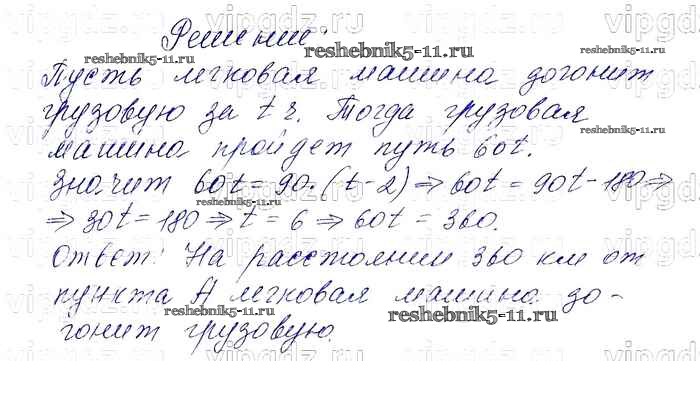 Решение.
Пусть легковая машина догонит
грузовую за t ч. Тогда грузовая
машина пройдет путь 60t.
Значит 60t = 90·(t-2) ⇒ 60t = 90t - 180 ⇒
⇒ 30t = 180 ⇒ t = 6 ⇒ 60t = 360.
Ответ: На расстоянии 360 км от
пункта А легковая машина до-
гонит грузовую.
reshebnik5-11.ru
reshebnik5-11.ru
reshebnik5-11.ru
reshebnik5-11.ru
reshebnik5-11.ru
reshebnik5-11.ru
vipgdz.ru
vipgdz.ru
vipgdz.ru
vipgdz.ru